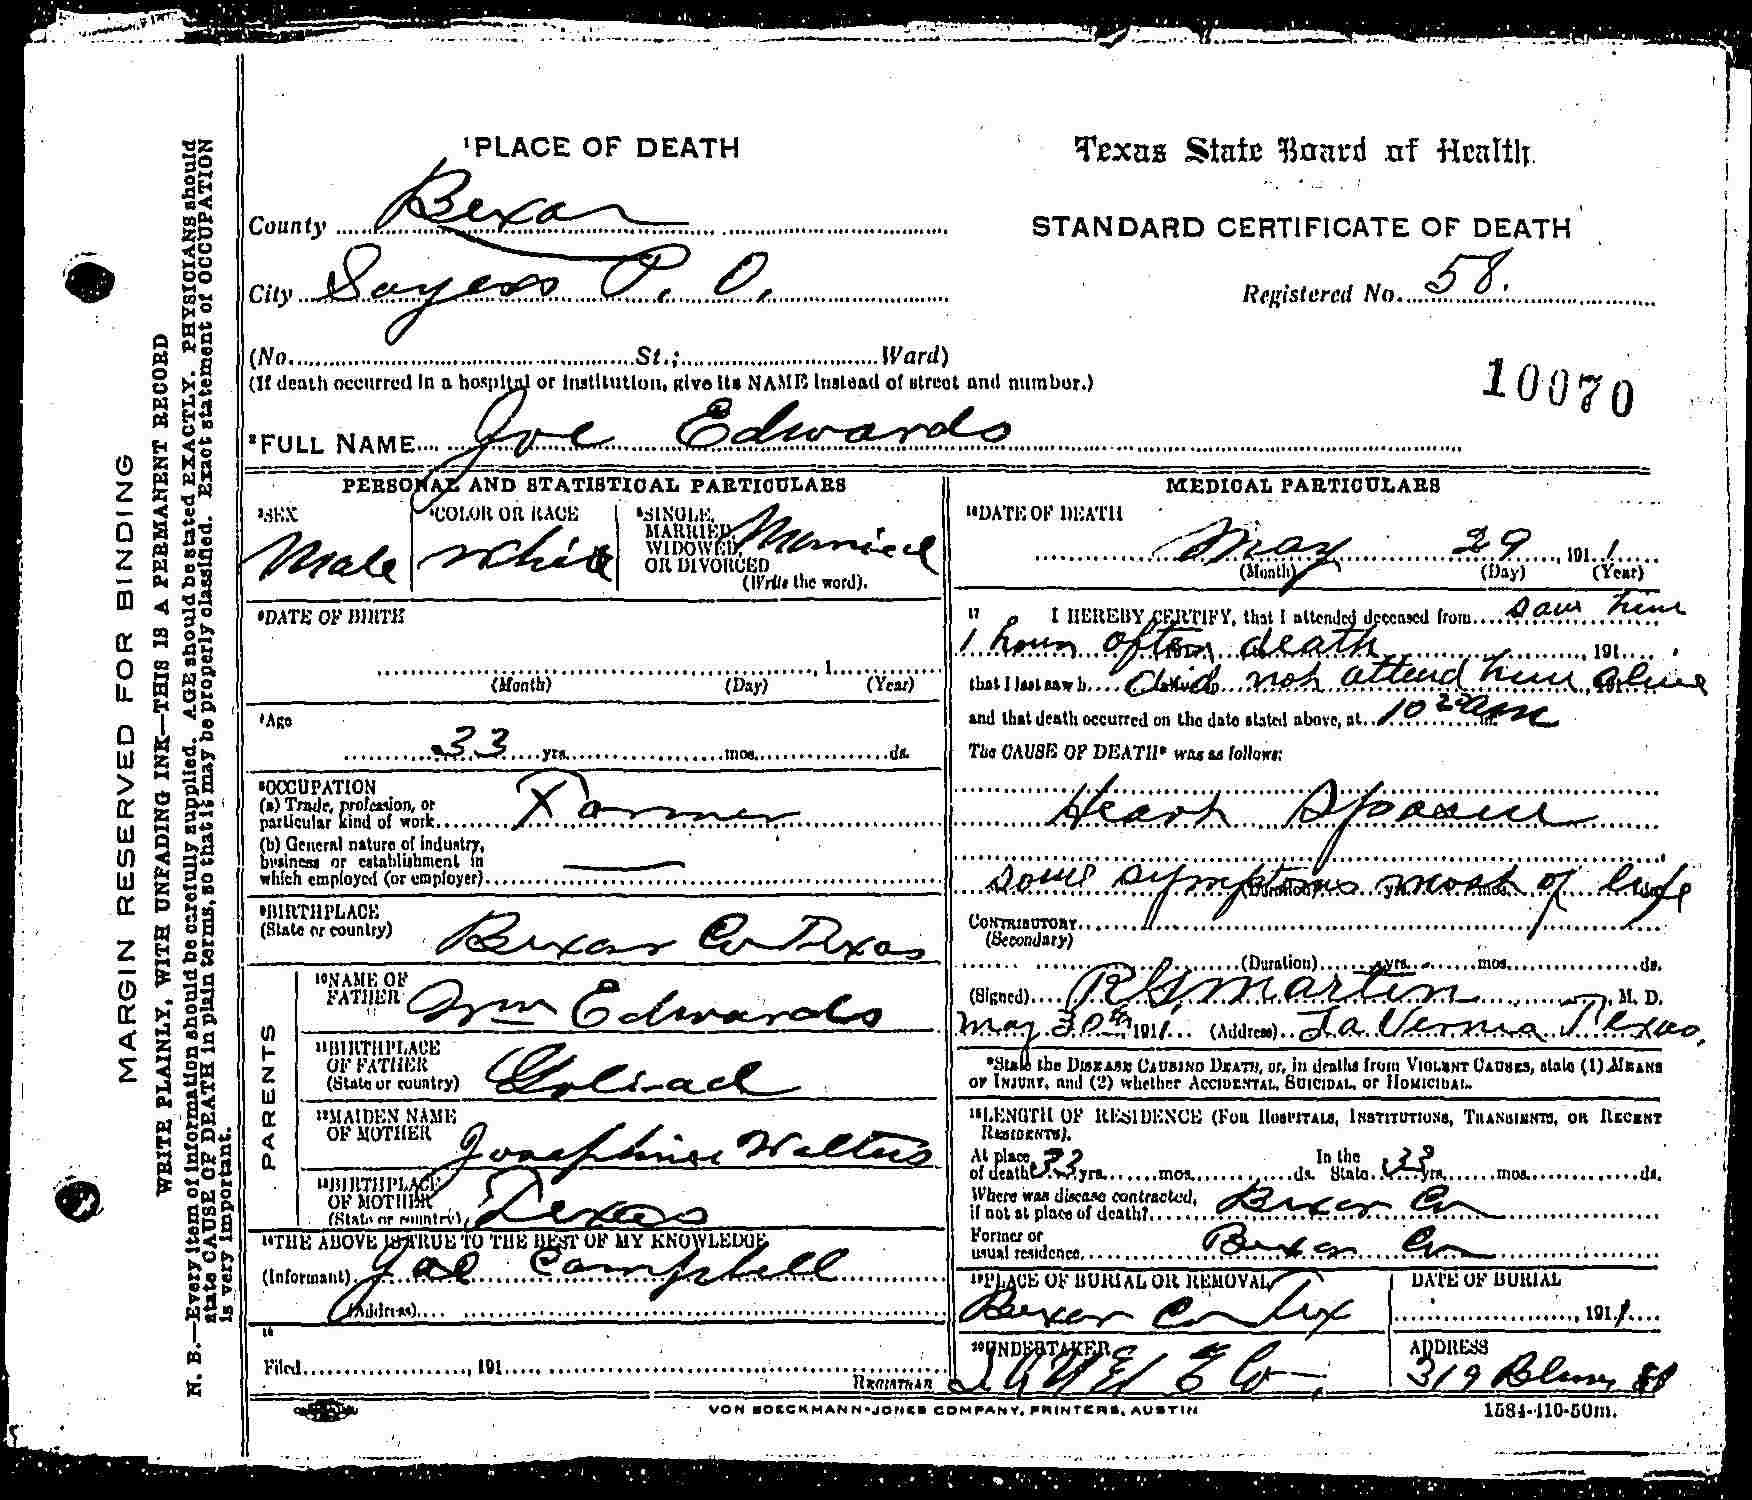 ¹PLACE OF DEATH
Texas State Board of Health
STANDARD CERTIFICATE OF DEATH
County Bexar
City Sayers P. O.
Registered No. 58.
(No. St.; Ward)
(If death occurred in a hospital or institution, give its NAME instead of street and number.)
10070
²FULL NAME Joe Edwards
PERSONAL AND STATISTICAL PARTICULARS
³SEX
Male
⁴COLOR OR RACE
White
⁵SINGLE,
MARRIED,
WIDOWED,
OR DIVORCED
(Write the word).
Married
⁶DATE OF BIRTH
, 1
(Month) (Day) (Year)
⁷Age
33 yrs. mos. ds.
⁸OCCUPATION
(a) Trade, profession, or
particular kind of work Farmer
(b) General nature of industry,
business or establishment in
which employed (or employer)
⁹BIRTHPLACE
(State or country) Bexar Co Texas
PARENTS
¹⁰NAME OF
FATHER Wm Edwards
¹¹BIRTHPLACE
OF FATHER
(State or country) Goliad
¹²MAIDEN NAME
OF MOTHER Josephine Walters
¹³BIRTHPLACE
OF MOTHER
(State or country) Texas
¹⁴THE ABOVE IS TRUE TO THE BEST OF MY KNOWLEDGE
(Informant) Joe Campbell
(Address)
¹⁵
Filed , 191
REGISTRAR
MEDICAL PARTICULARS
¹⁶DATE OF DEATH
May 29, 1911
(Month) (Day) (Year)
¹⁷ I HEREBY CERTIFY, that I attended deceased from saw him
1 hour after death , 191
that I last saw h did not attend him alive
and that death occurred on the date stated above, at 10 22 am m.
The CAUSE OF DEATH* was as follows:
Heart Spasm
some symptoms most of life
(Duration) yrs. mos. ds.
CONTRIBUTORY
(Secondary)
(Duration) yrs. mos. ds.
(Signed) R G Martin M. D.
May 30th, 1911 (Address) La Vernia Texas.
*State the DISEASE CAUSING DEATH, or, in deaths from VIOLENT CAUSES, state (1) MEANS
OF INJURY, and (2) whether ACCIDENTAL, SUICIDAL, or HOMICIDAL.
¹⁸LENGTH OF RESIDENCE (FOR HOSPITALS, INSTITUTIONS, TRANSIENTS, OR RECENT
RESIDENTS).
At place
of death 33 yrs. mos. ds.
In the
State 33 yrs. mos. ds.
Where was disease contracted,
if not at place of death? Bexar Co
Former or
usual residence Bexar Co
¹⁹PLACE OF BURIAL OR REMOVAL
Bexar Co Tex
DATE OF BURIAL
, 1911
²⁰UNDERTAKER
Co
ADDRESS
319
VON BOECKMANN-JONES COMPANY, PRINTERS, AUSTIN
1584-410-50m.
MARGIN RESERVED FOR BINDING
WRITE PLAINLY, WITH UNFADING INK—THIS IS A PERMANENT RECORD
N. B.—Every item of information should be carefully supplied. AGE should be stated EXACTLY. PHYSICIANS should
state CAUSE OF DEATH in plain terms, so that it may be properly classified. Exact statement of OCCUPATION
is very important.